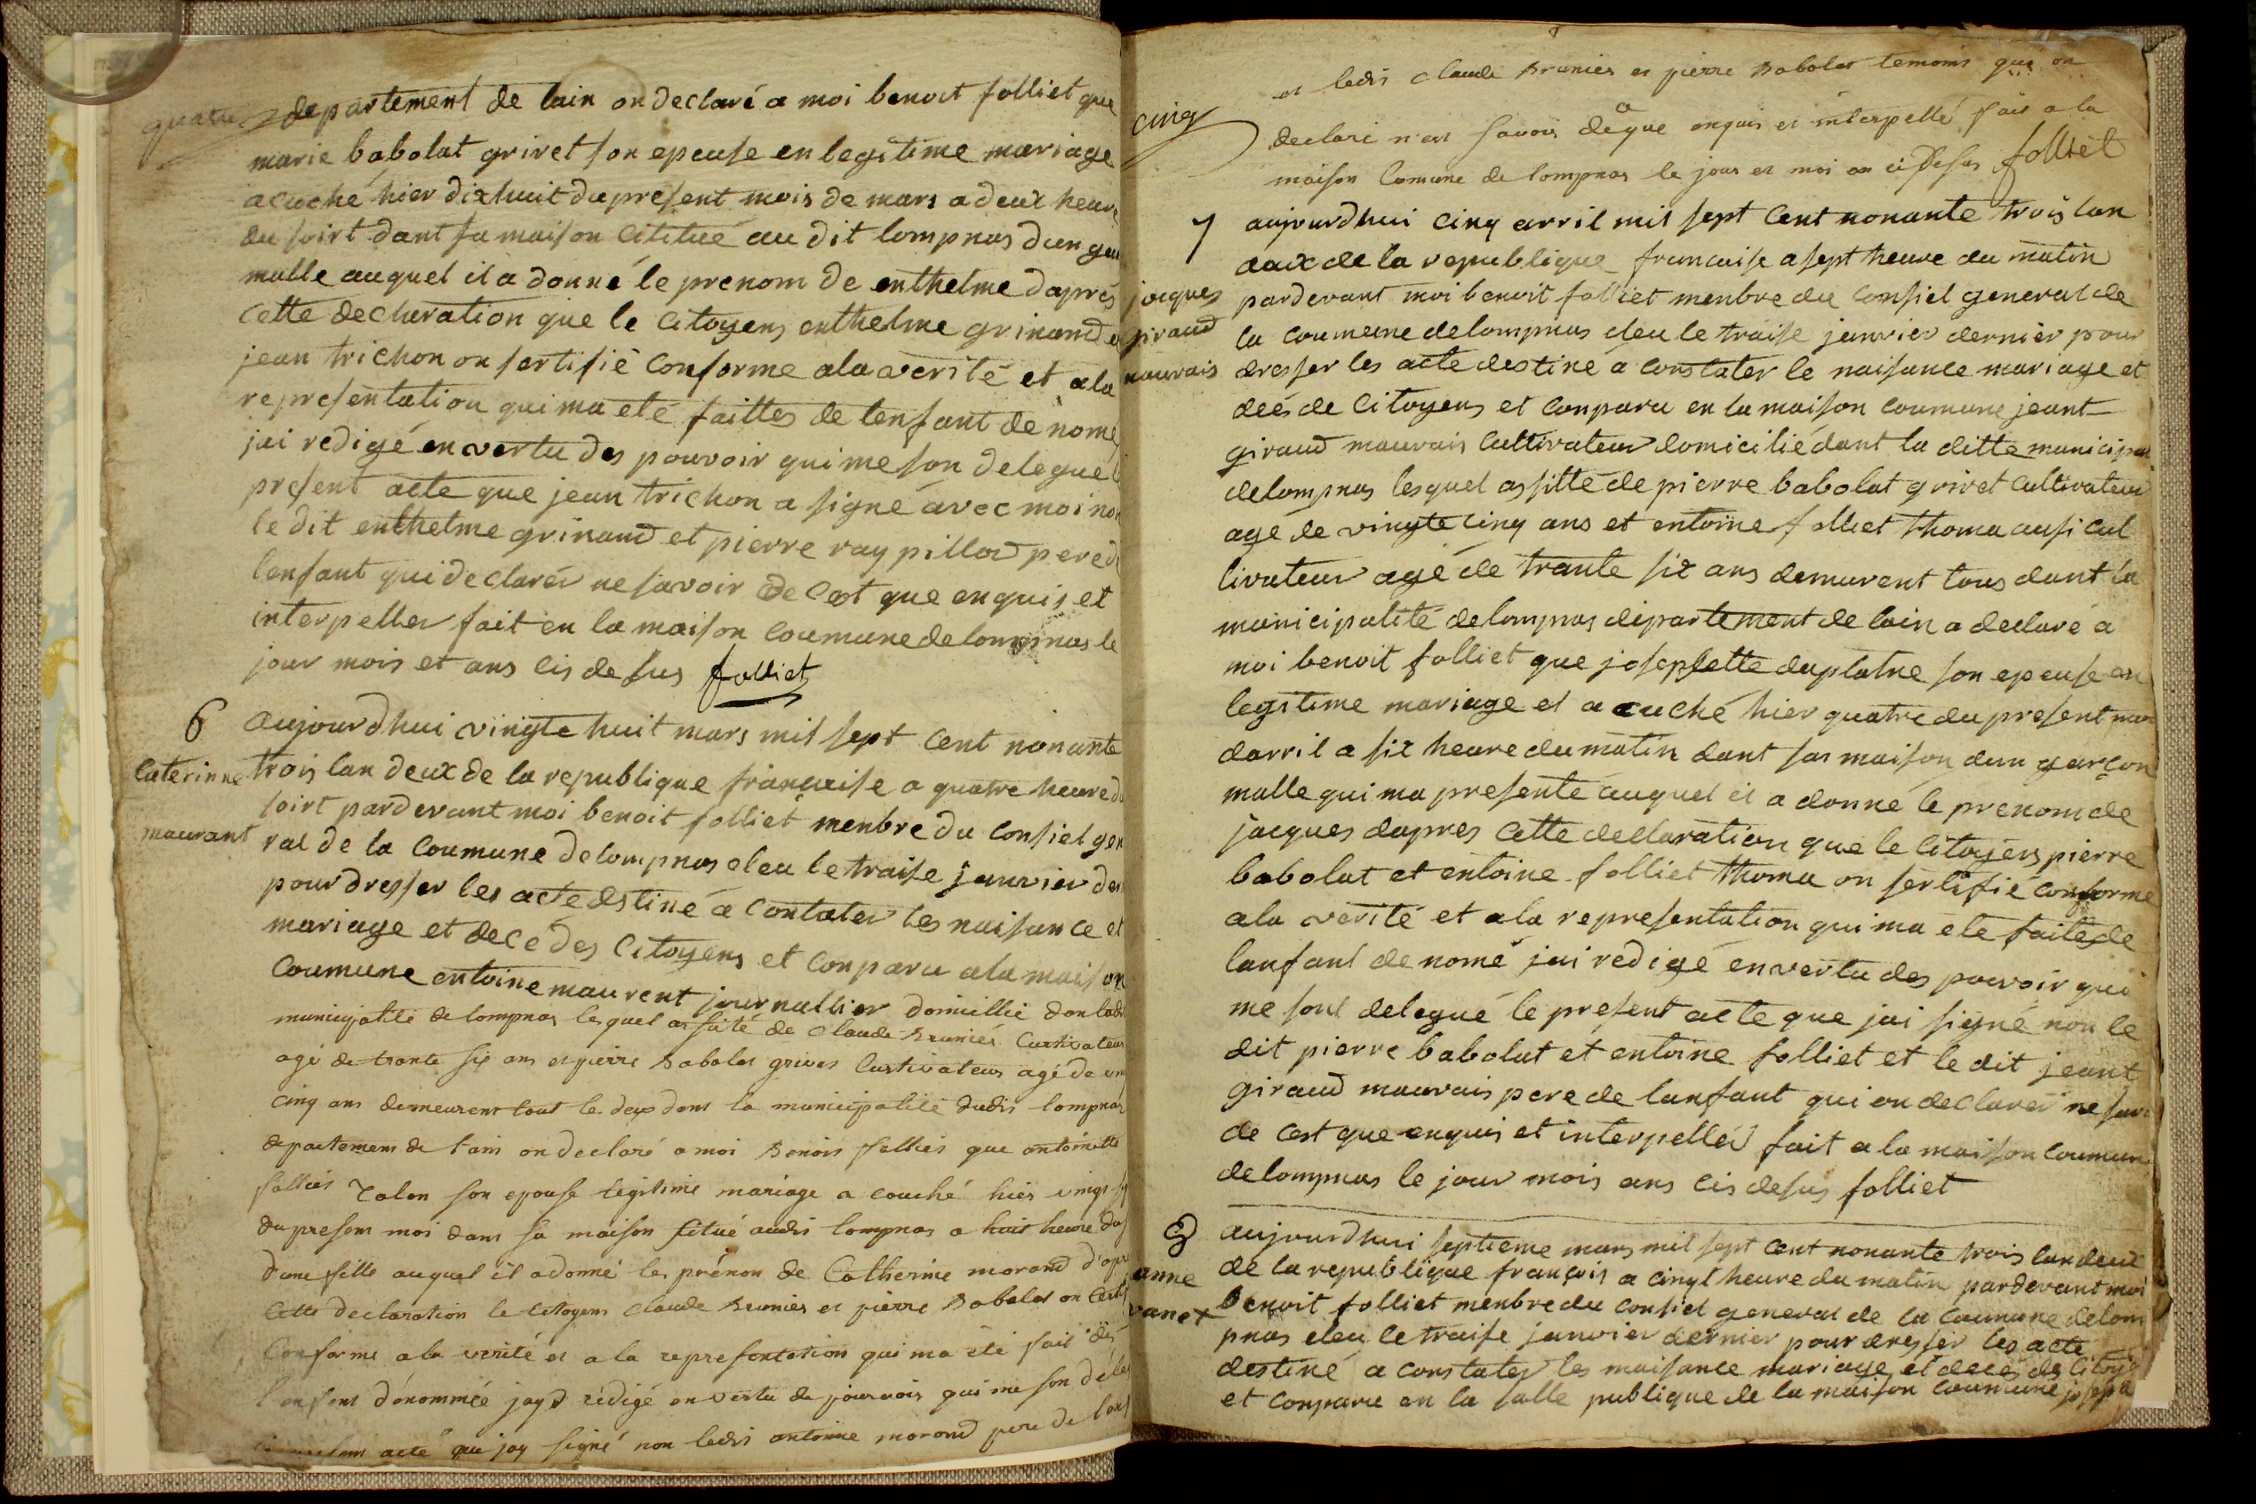 quatre
departement de lain on declaré a moi benoit folliet que
marie babolat grivet son epeuse en legitime mariage
acuché hier dixhuit du present mois de mars a deux heure
du soirt dant sa maison cititué au dit lompnas dun
malle auquel il a donné le prenom de enthelme dapres
cette declaration que le citoyens enthelme grinand et
jean trichon on sertifié conforme ala verité et ala
representation qui ma eté faittes de lenfant de nomé
jai redigé en vertu des pouvoir qui me son delegue
present acte que jean trichon a signé avec moi non
le dit enthelme grinand et pierre ray pillod pere de
lenfant qui declarer ne savoir de cest que enquis et
interpeller fait en la maison coumune de lompnas le
jour mois et ans cis desus folliet
6 aujourdhui vingte huit mars mil sept cent nonante
caterinne trois lan deux de la republique francaise a quatre heure du
soirt pardevant moi benoit folliet menbre du consiel gen
maurant ral de la coumune delompnas eleu le traise janvier der
pour dresser les acte destiné a contater les naisance et
mariage et decé des citoyens et conparu ala maison
coumune entoine maurent journallier domicillié dan ladi
municipalité de lompnas lesquel assité de claude Brunier Curtivateur
agé de trante six ans et pierre Babolat grivet Curtivateur agé de vin
cinq ans demeurent tout le deux dans la municipalité dudis lompnas
departement de lain on declaré a moi Benois folliet que antoinette
folliet Talon son epouse legitime mariage a couché hier vingt
du presens moi dans sa maison situé audis lompnas a huit heure du
dune fille auquel il a donné les prénon de Catherine morand d'apre
Cette declaration le Citoyens Claude Brunier et pierre Babolat on Certif
Conforme a la verité et a la representation qui ma eté fait des
lenfens dénommée jayd rédigé en vertu de pouvoir qui me son déle
acte que jay signé non ledis antoine morand pere de lenf
et ledis Claude Brunier et pierre Babolat temoins que on
cinq
declaré n'en savoir de ce que enquis et interpellé fait a la
maison Comune de lompnas le jour et moi an ci desus folliet
7 aujourdhui cinq avril mil sept cent nonante trois lan
deux de la republique francaise a sept heure du matin
jacques pardevant moi benoit folliet menbre du consiel general de
giraud la coumune delompnas eleu le traise janvier dernier pour
mauvais dresser les acte destiné a constater le naisance mariage et
deés de citoyens et conparu en la maison coumune jeant
giraud mauvais cultivateur domicilié dant la ditte municipal
delompnas lesquel assitté de pierre babolat grivet cultivateur
age de vingte cinq ans et entoine folliet thoma ausi cul
tivateur agé de trante six ans demurent tous dant la
municipalité delompnas departement de lain a declaré a
moi benoit folliet que josephette duplatre son epeuse en
legitime mariage et a cuché hier quatre du present moi
davril a six heure du matin dant sas maison dun garçon
malle qui ma presenté auquel il a donné le prenom de
jacques dapres cette declaration que le citoyens pierre
babolat et entoine folliet thoma on sertifié conforme
ala verité et ala representation qui ma ete faite de
lanfant de nomé jai redigé en vertu des pouvoir qui
me sont delegué le present acte que jai signé non le
dit pierre babolat et entoine folliet et le dit jeant
giraud mauvais pere de lanfant qui on declarer ne sav
de cest que enquis et interpeller fait a la maison coumun
delompnas le jour mois ans cis desus folliet
8 aujourdhui septieme mars mil sept cent nonante trois lan deux
anne de la republique françois a cinqt heure du matin pardevant moi
vanet Benoit folliet menbre du consiel general de la coumune de lom
pnas eleu le traise janvier dernier pour dresser les acte
destiné a constater les naisance mariage et decé de citoye
et conparu en la salle publique de la maison coumune joseph